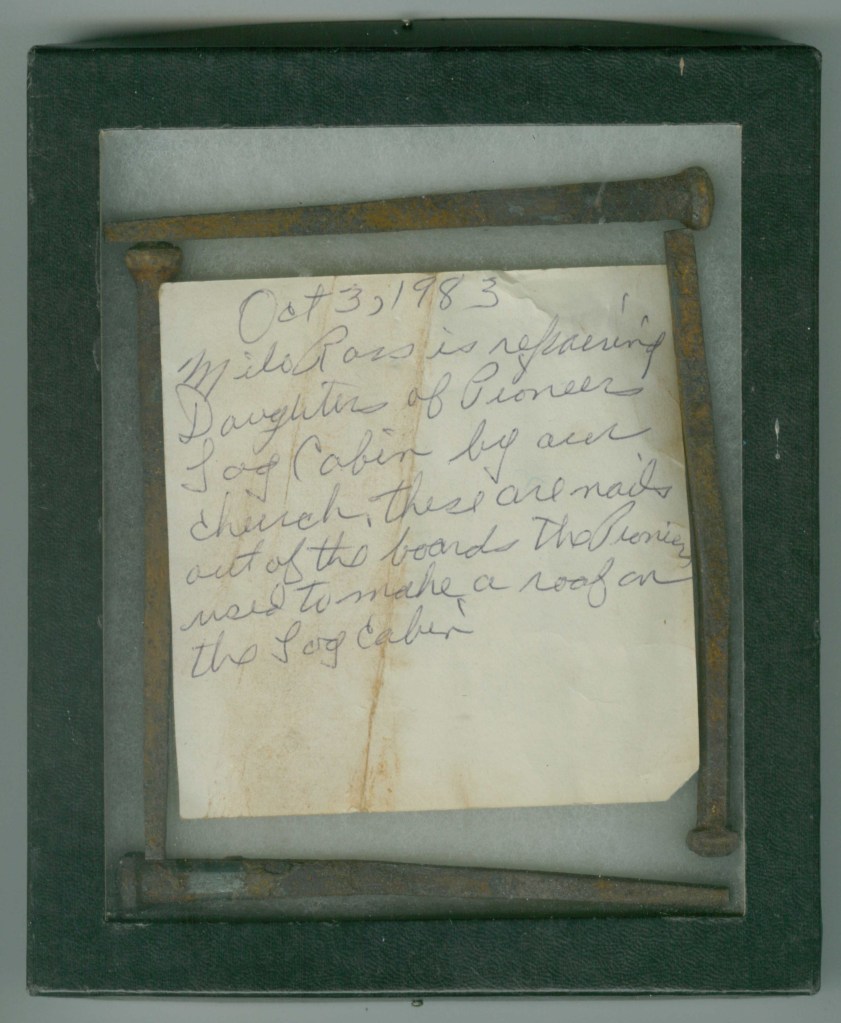 Oct 3, 1983
Milo Ross is repairing
Daughters of Pioneers
Log Cabin by our
church, these are nails
out of the boards The Pioneers
used to make a roof on
the Log Cabin